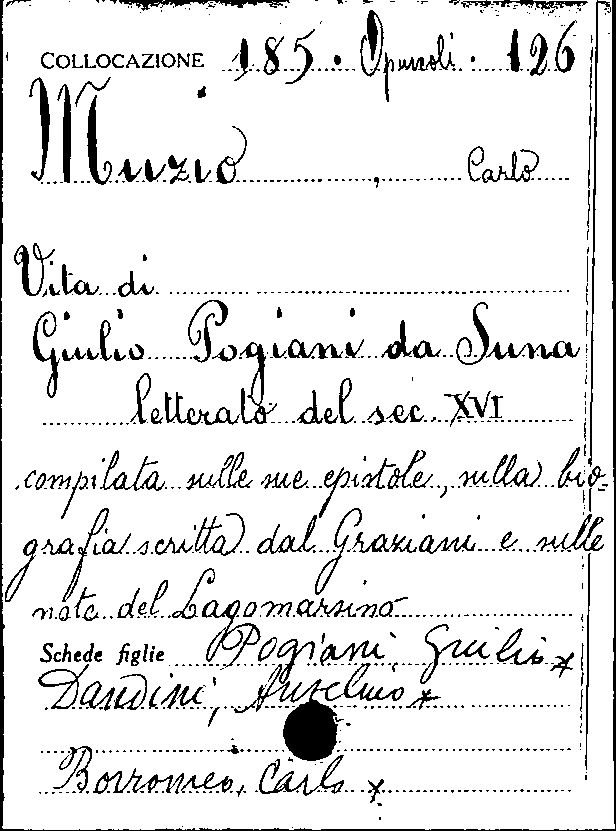 COLLOCAZIONE 185. Opuscoli. 126
Muzio, Carlo
Vita di
Giulio Pogiani da Suna
letterato del sec. XVI
compilata sulle sue epistole, sulla bio-
grafia scritta dal Graziani e sulle
note del Lagomarsino
Schede figlie Pogiani, Giulio x
Dandini, Anselmo x
Borromeo, Carlo x